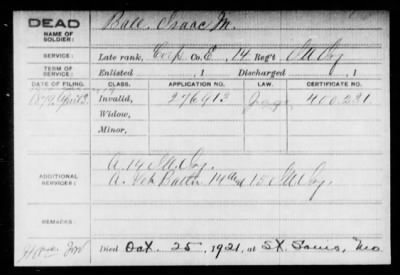 DEAD
NAME OF SOLDIER: Ball, Isaac M.
SERVICE: Late rank, Corp Co. E, 14 Reg't Ill Cav
TERM OF SERVICE: Enlisted , 1 Discharged , 1
DATE OF FILING. CLASS. APPLICATION NO. LAW. CERTIFICATE NO.
1879, April 2 Invalid, 276913 400.221
Widow,
Minor,
ADDITIONAL SERVICES: A. 14 Ill Cav.
A. Batt'n 14 15 Ill Cav.
REMARKS:
Died Oct. 25, 1921, at St. Louis, Mo.